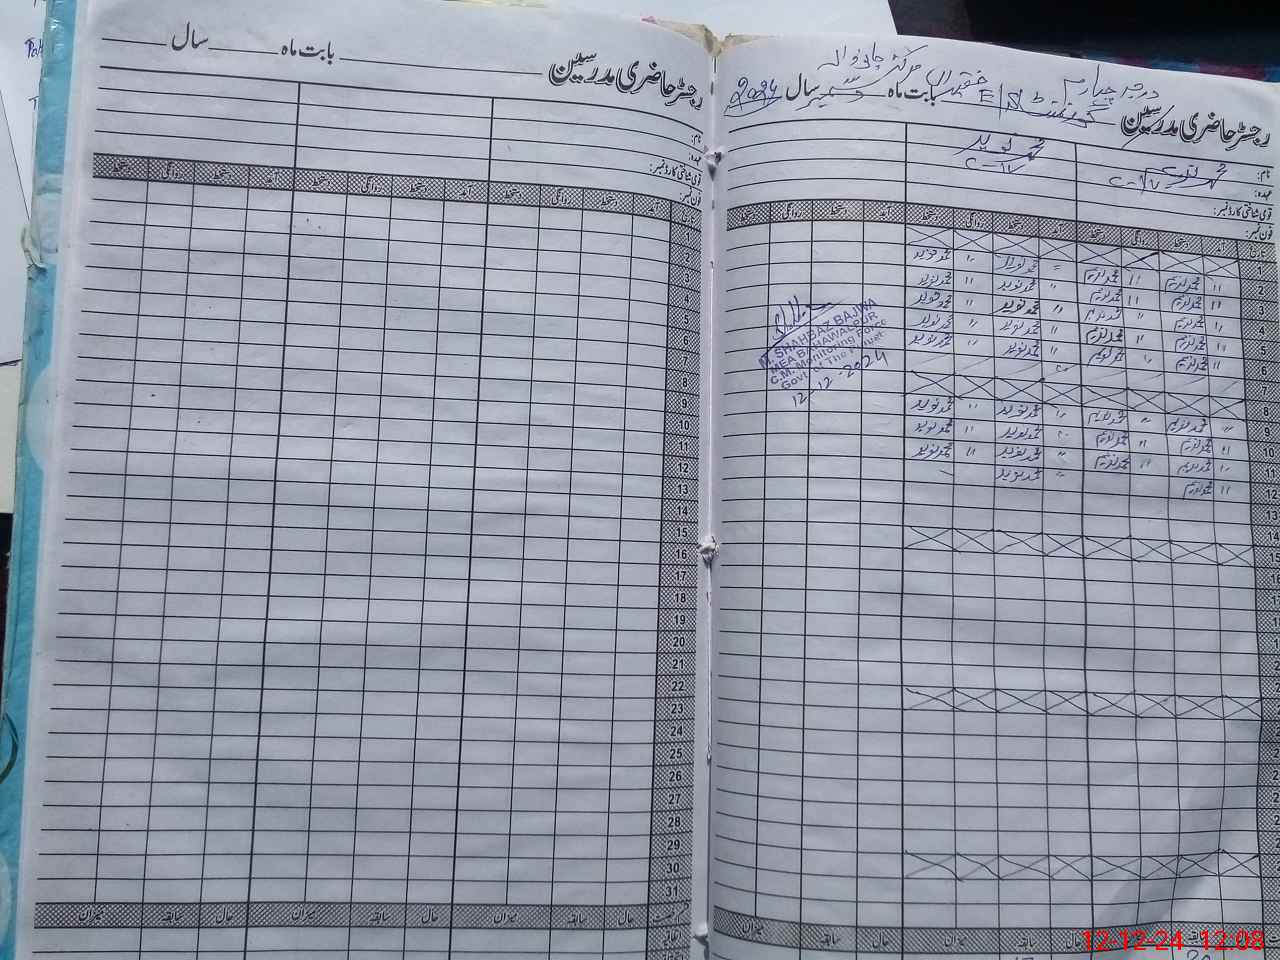 رجسٹر حاضری مدرسین بابت ماہ دسمبر سال 2024
درجہ چہارم
گورنمنٹ E/S
نام: محمد ندیم
محمد نوید
عہدہ:
قومی شناختی کارڈ نمبر:
فون نمبر:
تاریخ آمد دستخط روانگی دستخط آمد دستخط روانگی دستخط آمد دستخط روانگی دستخط
1
2 〃 محمد ندیم 〃 محمد ندیم 〃 محمد نوید 〃 محمد نوید
3 〃 محمد ندیم 〃 محمد ندیم 〃 محمد نوید 〃 محمد نوید
4 〃 محمد ندیم 〃 محمد ندیم 〃 محمد نوید 〃 محمد نوید
5 〃 محمد ندیم 〃 محمد ندیم 〃 محمد نوید 〃 محمد نوید
6 〃 محمد ندیم 〃 محمد ندیم 〃 محمد نوید 〃 محمد نوید
7
8
9 〃 محمد ندیم 〃 محمد ندیم 〃 محمد نوید 〃 محمد نوید
10 〃 محمد ندیم 〃 محمد ندیم 〃 محمد نوید 〃 محمد نوید
11 〃 محمد ندیم 〃 محمد ندیم 〃 محمد نوید 〃 محمد نوید
12 〃 محمد ندیم 〃 محمد نوید
13
14
15
M. SHAHBAZ BAJWA
MEA BAHAWALPUR
C.M. Monitoring Force
Govt. of The Punjab
12-12-2024
میزان سابقہ حال میزان سابقہ
رجسٹر حاضری مدرسین بابت ماہ سال
نام:
عہدہ:
قومی شناختی کارڈ نمبر:
فون نمبر:
تاریخ آمد دستخط روانگی دستخط آمد دستخط روانگی دستخط آمد دستخط روانگی دستخط
1
2
3
4
5
6
7
8
9
10
11
12
13
14
15
16
17
18
19
20
21
22
23
24
25
26
27
28
29
30
31
حال سابقہ میزان حال سابقہ میزان حال سابقہ میزان
12-12-24 12:08